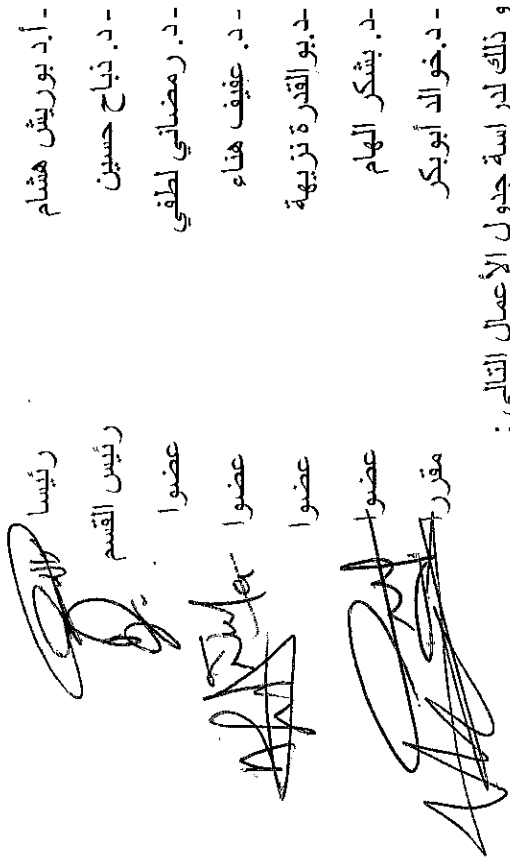 - أ.د بوريش هشام رئيسا
- د. ذباح حسين رئيس القسم
- د. رمضاني لطفي عضوا
- د. عفيف هناء عضوا
- د. بو القدرة نزيهة عضوا
- د. بشكر الهام عضوا
- د. خوالد أبو بكر مقررا
و ذلك لدراسة جدول الأعمال التالي :